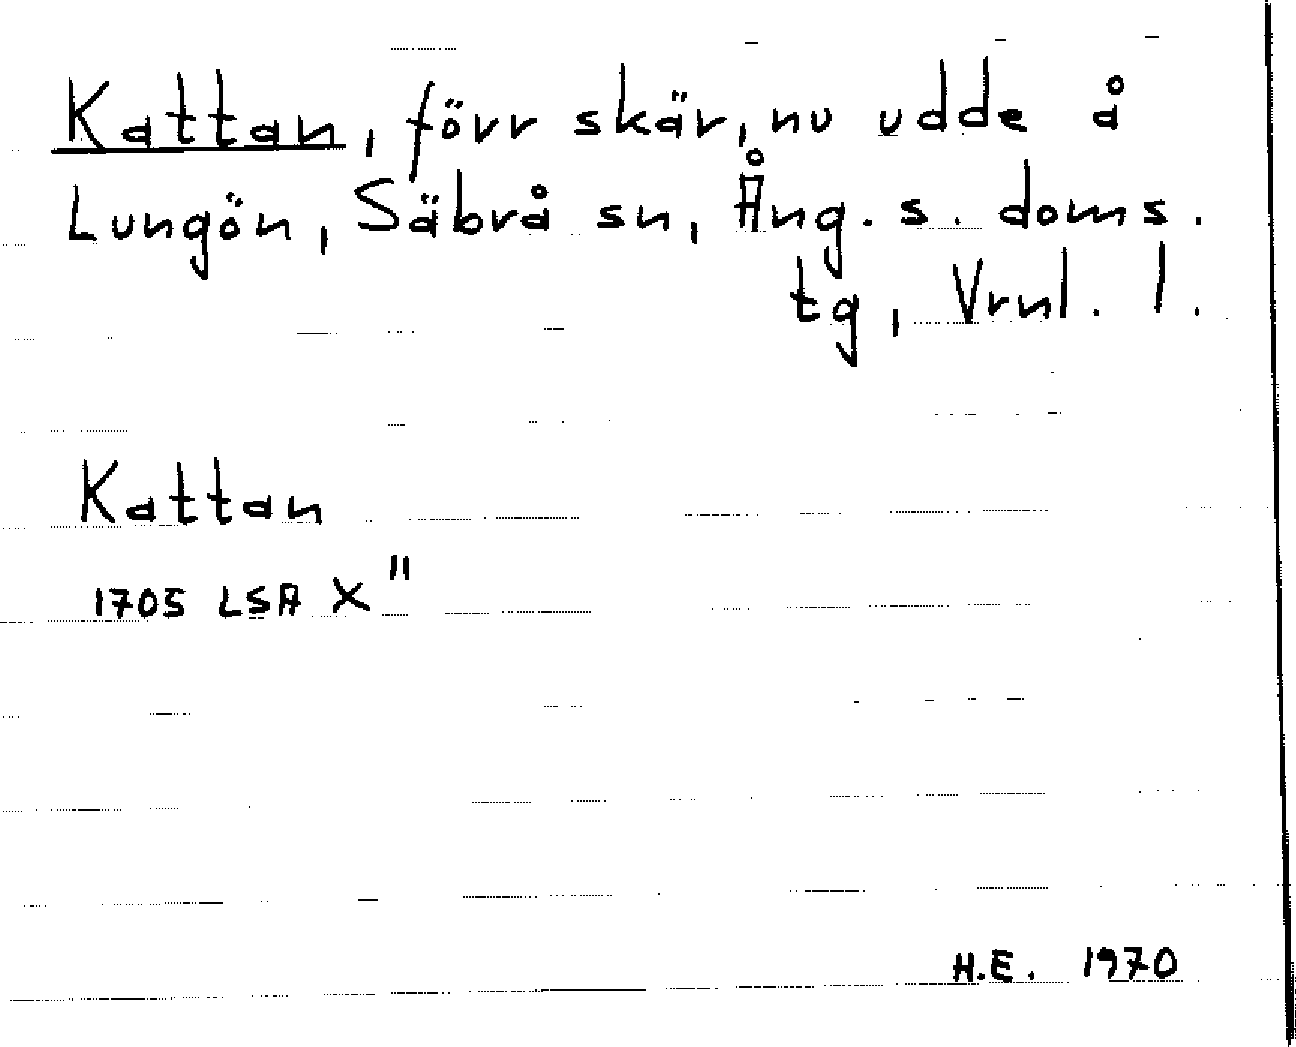 Kattan, förr skär, nu udde å
Lungön, Säbrå sn, Ång. s. doms.
tg, Vrnl. l.
Kattan
1705 LSA X"
H.E. 1970